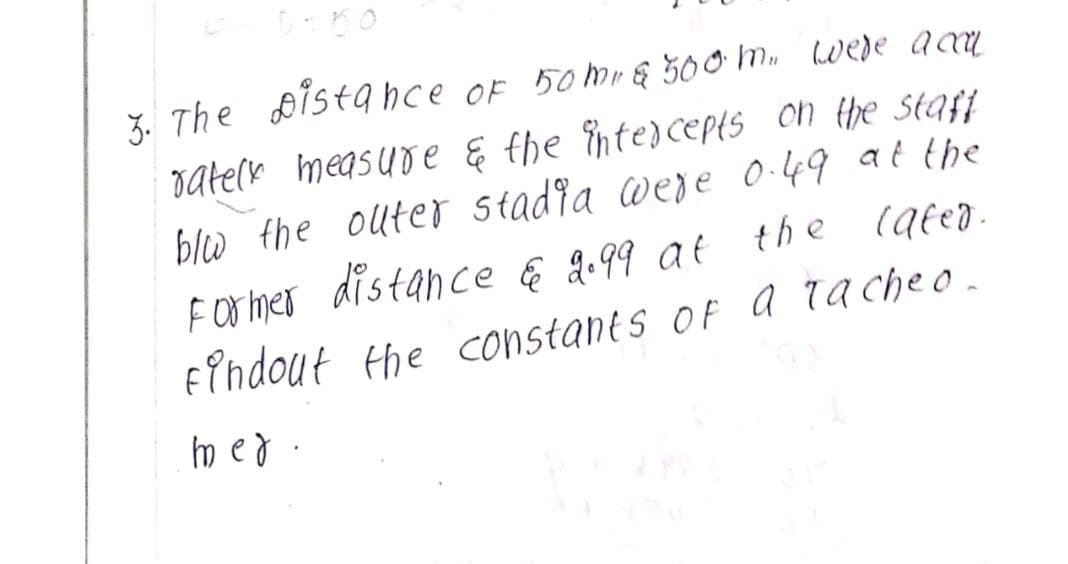 3. The Distance OF 50 m,, & 300 m,, were accu
rately measure & the intercepts on the staff
b/w the outer stadia were 0.49 at the
Former distance & 2.99 at the later.
Findout the constants OF a Tacheo-
mer.